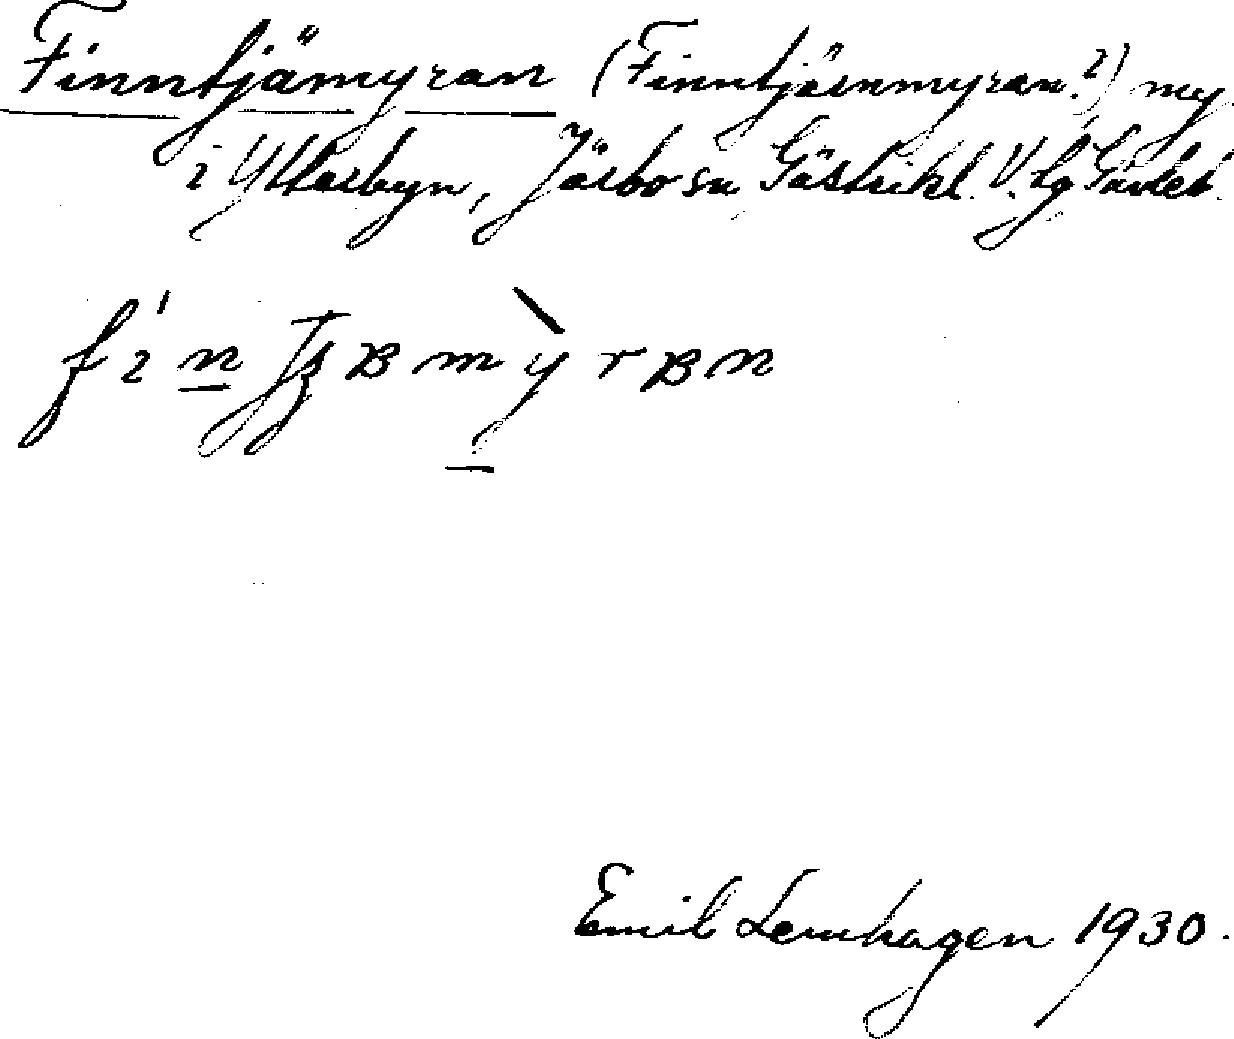 Finntjämyran (Finntjärnmyran?) my
i Ytterbyn, Järbo sn Gästrikl. V. lg Gävleb.
Emil Lemhagen 1930.